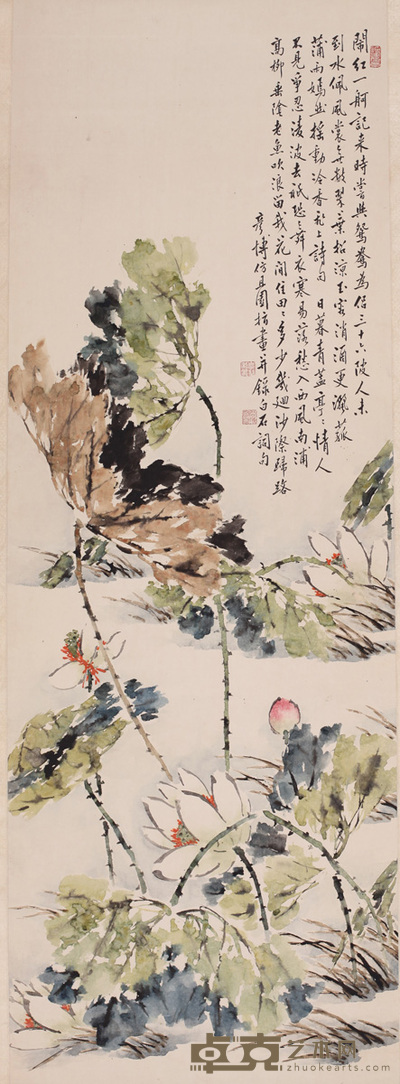 鬧紅一舸記來時嘗與鴛鴦為侣三十六陂人未
到水佩風裳無數翠葉招涼玉容消酒更灑菰
蒲雨嫣然搖動冷香飛上詩句 日暮青蓋亭〻情人
不見爭忍淩波去祇恐舞衣寒易落愁入西風南浦
高柳垂陰老魚吹浪留我花間住田〻多少幾迴沙際歸路
彥博仿且園指畫并錄白石詞句
卓克艺术网
zhuokearts.com